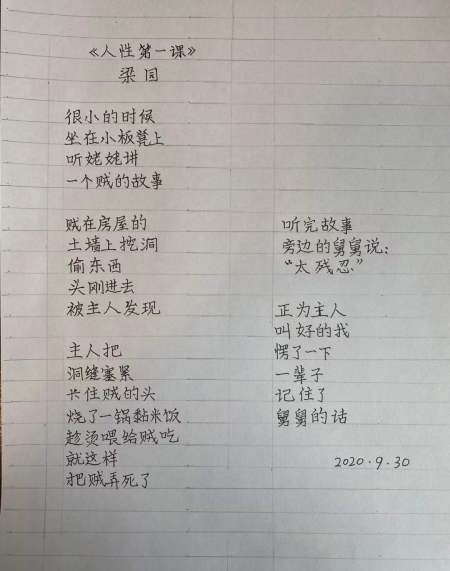 《人性第一课》
梁同
很小的时候
坐在小板凳上
听姥姥讲
一个贼的故事
贼在房屋的
土墙上挖洞
偷东西
头刚进去
被主人发现
主人把
洞缝塞紧
卡住贼的头
烧了一锅黏米饭
趁烫喂给贼吃
就这样
把贼弄死了
听完故事
旁边的舅舅说：
“太残忍”
正为主人
叫好的我
愣了一下
一辈子
记住了
舅舅的话
2020.9.30